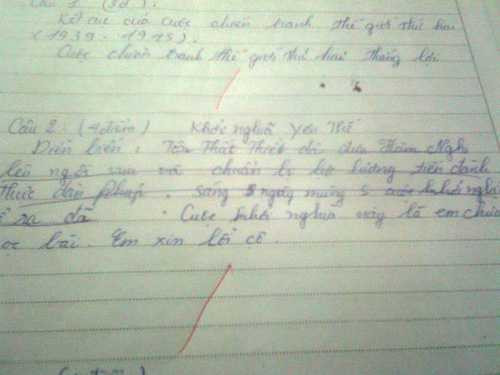 Câu 1 (3đ).
Kết cục của cuộc chiến tranh thế giới thứ hai
(1939 - 1945).
Cuộc chiến tranh thế giới thứ hai thắng lợi
Câu 2: (4điểm) Khởi nghĩa Yên Thế
Diễn biến: Tôn Thất Thuyết đã đưa Hàm Nghi
lên ngôi vua và chuẩn bị lực lượng tiến đánh
thực dân Pháp. sáng 5 ngày mùng 5 cuộc khởi nghĩa
ra đã Cuộc khởi nghĩa này là em chưa
bài. Em xin lỗi cô.